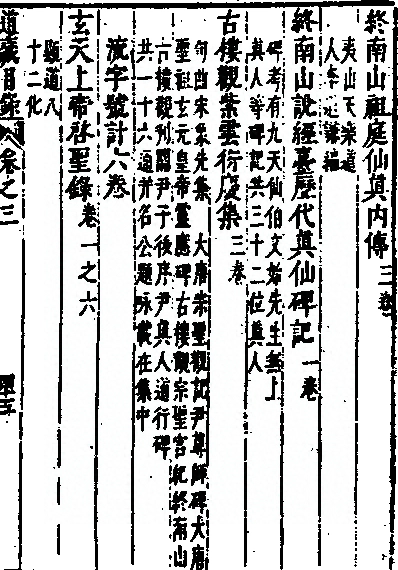 終南山祖庭仙眞内傳 三卷
夷山天樂道
人李道謙編
終南山說經臺歷代眞仙碑記 一卷
碑考有九天仙伯文始先生無上
眞人等碑記共三十二位眞人
古樓觀紫雲衍慶集 三卷
句曲朱象先集 大唐宗聖觀記尹尊師碑大唐
聖祖玄元皇帝靈應碑古樓觀宗聖宮記終南山
古樓觀刋關尹子後序尹眞人道行碑
共一十六通并名公題咏載在集中
流字號計六卷
玄天上帝啓聖錄 卷一之六
顯道八
十二化
道藏目錄 卷之三